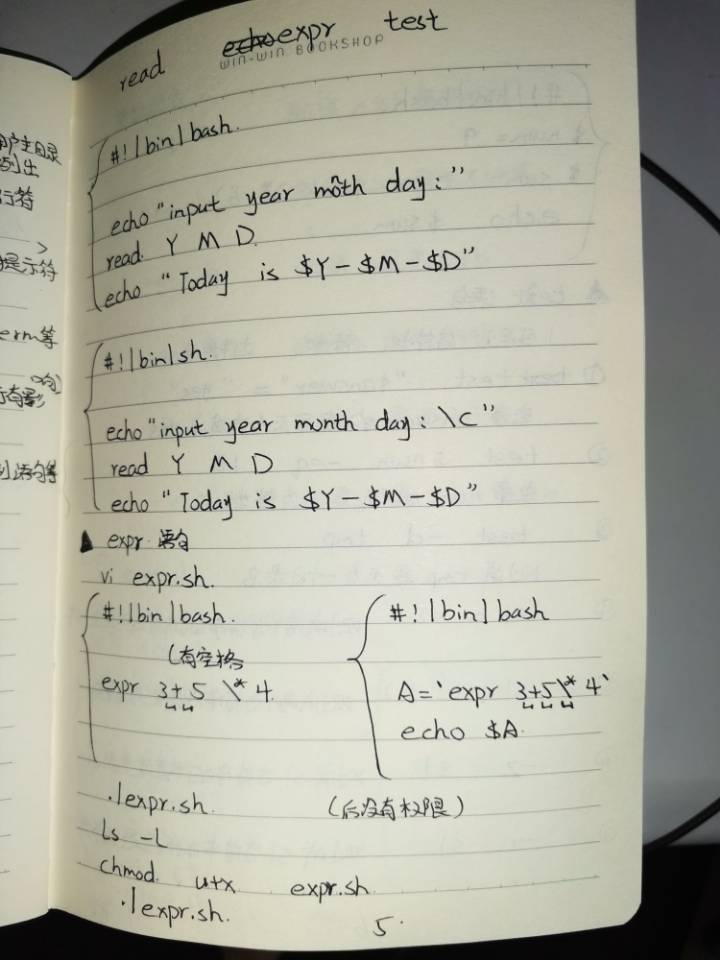 read expr test
WIN-WIN BOOKSHOP
#!/bin/bash.
echo "input year moth day:"
read Y M D
echo "Today is $Y-$M-$D"
#!/bin/sh.
echo "input year month day: \c"
read Y M D
echo "Today is $Y-$M-$D"
▲ expr 语句
vi expr.sh.
#!/bin/bash.
(有空格
expr 3+5 \* 4
#!/bin/bash
A=`expr 3+5\* 4`
echo $A
./expr.sh. (后没有权限)
ls -l
chmod u+x expr.sh
./expr.sh.
5.
主目录
列出
行符
>
提示符
erm等
响)
语句等